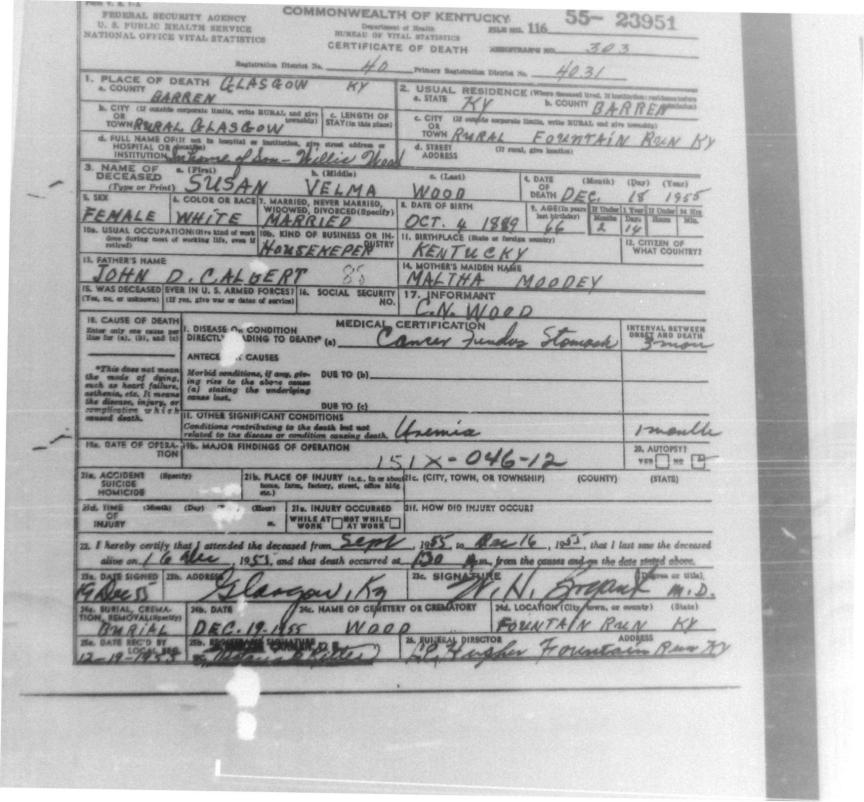 FEDERAL SECURITY AGENCY
U. S. PUBLIC HEALTH SERVICE
NATIONAL OFFICE VITAL STATISTICS
COMMONWEALTH OF KENTUCKY
Department of Health
BUREAU OF VITAL STATISTICS
CERTIFICATE OF DEATH
FILE NO. 116 55- 23951
REGISTRAR'S NO. 303
Registration District No. 40 Primary Registration District No. 4031
1. PLACE OF DEATH GLASGOW KY
a. COUNTY BARREN
2. USUAL RESIDENCE (Where deceased lived. If institution: residence before
a. STATE KY b. COUNTY BARREN
b. CITY (If outside corporate limits, write RURAL and give township)
OR TOWN RURAL GLASGOW
c. LENGTH OF STAY (in this place)
c. CITY (If outside corporate limits, write RURAL and give township)
OR TOWN RURAL FOUNTAIN RUN KY
d. FULL NAME OF (If not in hospital or institution, give street address or location)
HOSPITAL OR INSTITUTION In home of Son - Willie Wood
d. STREET ADDRESS (If rural, give location)
3. NAME OF DECEASED (Type or Print)
a. (First) SUSAN b. (Middle) VELMA c. (Last) WOOD
4. DATE OF DEATH (Month) (Day) (Year) DEC. 18 1955
5. SEX FEMALE
6. COLOR OR RACE WHITE
7. MARRIED, NEVER MARRIED, WIDOWED, DIVORCED (Specify) MARRIED
8. DATE OF BIRTH OCT. 4 1889
9. AGE (In years last birthday) 66 If Under 1 Year Months 2 Days 14 If Under 24 Hrs. Hours Min.
10a. USUAL OCCUPATION (Give kind of work done during most of working life, even if retired)
10b. KIND OF BUSINESS OR INDUSTRY HOUSEKEPER
11. BIRTHPLACE (State or foreign country) KENTUCKY
12. CITIZEN OF WHAT COUNTRY?
13. FATHER'S NAME JOHN D. CALBERT
14. MOTHER'S MAIDEN NAME MALTHA MOODEY
15. WAS DECEASED EVER IN U. S. ARMED FORCES?
(Yes, no, or unknown) (If yes, give war or dates of service)
16. SOCIAL SECURITY NO.
17. INFORMANT C.N. WOOD
18. CAUSE OF DEATH
Enter only one cause per line for (a), (b), and (c)
MEDICAL CERTIFICATION
INTERVAL BETWEEN ONSET AND DEATH
I. DISEASE OR CONDITION
DIRECTLY LEADING TO DEATH* (a) Cancer Fundus Stomach 3 mon
*This does not mean the mode of dying, such as heart failure, asthenia, etc. It means the disease, injury, or complication which caused death.
ANTECEDENT CAUSES
Morbid conditions, if any, giving rise to the above cause (a) stating the underlying cause last.
DUE TO (b)
DUE TO (c)
II. OTHER SIGNIFICANT CONDITIONS
Conditions contributing to the death but not related to the disease or condition causing death. Uremia 1 month
19a. DATE OF OPERATION
19b. MAJOR FINDINGS OF OPERATION
151X-046-12
20. AUTOPSY?
YES NO
21a. ACCIDENT SUICIDE HOMICIDE (Specify)
21b. PLACE OF INJURY (e.g., in or about home, farm, factory, street, office bldg. etc.)
21c. (CITY, TOWN, OR TOWNSHIP) (COUNTY) (STATE)
21d. TIME OF INJURY (Month) (Day) (Hour) m.
21e. INJURY OCCURRED
WHILE AT WORK NOT WHILE AT WORK
21f. HOW DID INJURY OCCUR?
22. I hereby certify that I attended the deceased from Sept, 1955 to Dec 16, 1955, that I last saw the deceased
alive on 16 Dec, 1955, and that death occurred at 130 m., from the causes and on the date stated above.
23a. DATE SIGNED 19 Dec 55
23b. ADDRESS Glasgow, Ky
23c. SIGNATURE (Degree or title) W. H. Bryant M.D.
24a. BURIAL, CREMATION, REMOVAL (Specify) BURIAL
24b. DATE DEC. 19. 1955
24c. NAME OF CEMETERY OR CREMATORY WOOD
24d. LOCATION (City, town, or county) (State) FOUNTAIN RUN KY
25a. DATE REC'D BY LOCAL REG. 12-19-1955
25b. REGISTRAR'S SIGNATURE
26. FUNERAL DIRECTOR ADDRESS
Fountain Run KY